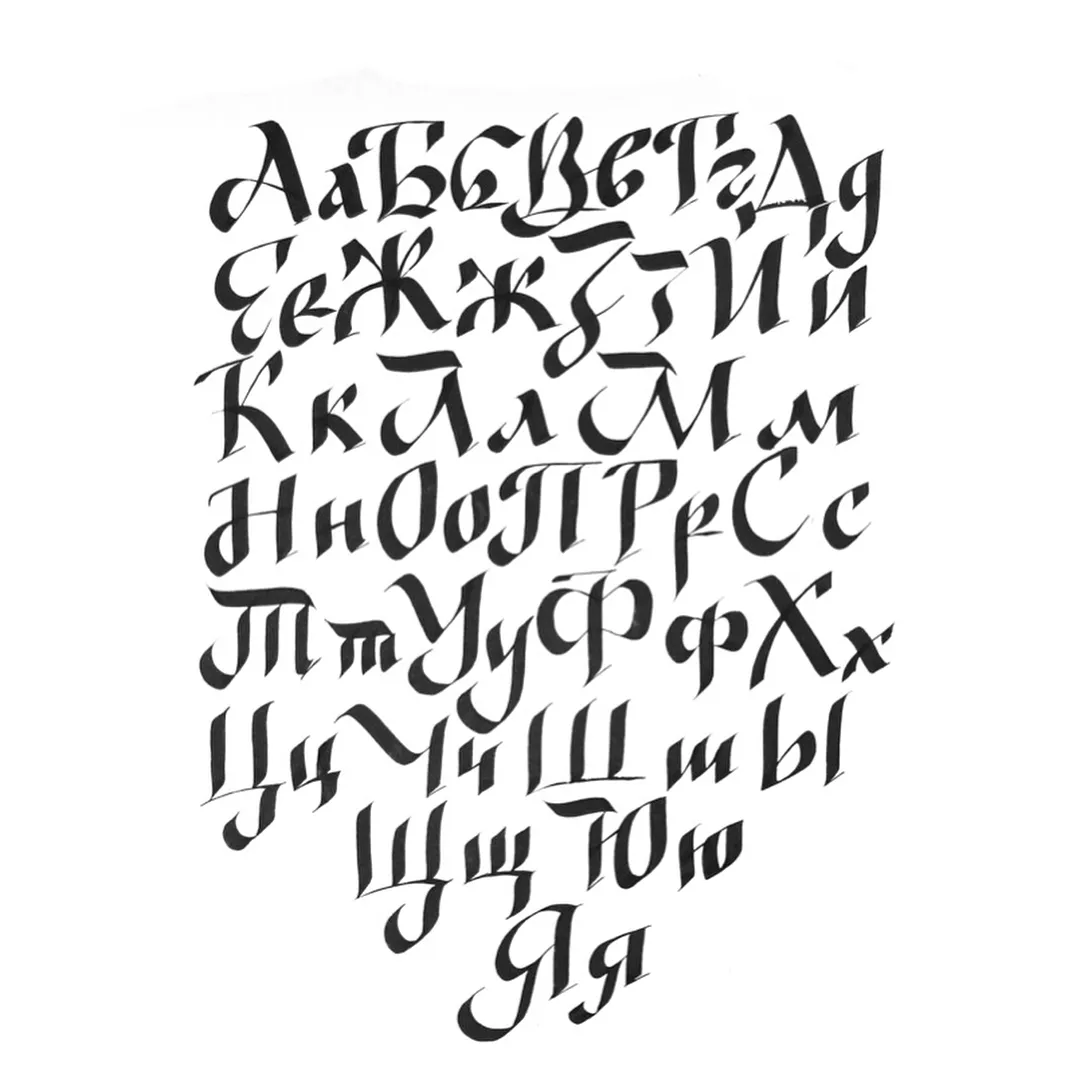 АаБбВвГгДд
ЕеЖжЗзИи
КкЛлМм
НнОоПРрСс
ТтУуФфХх
ЦцЧчШшЫ
ЩщЮю
Яя